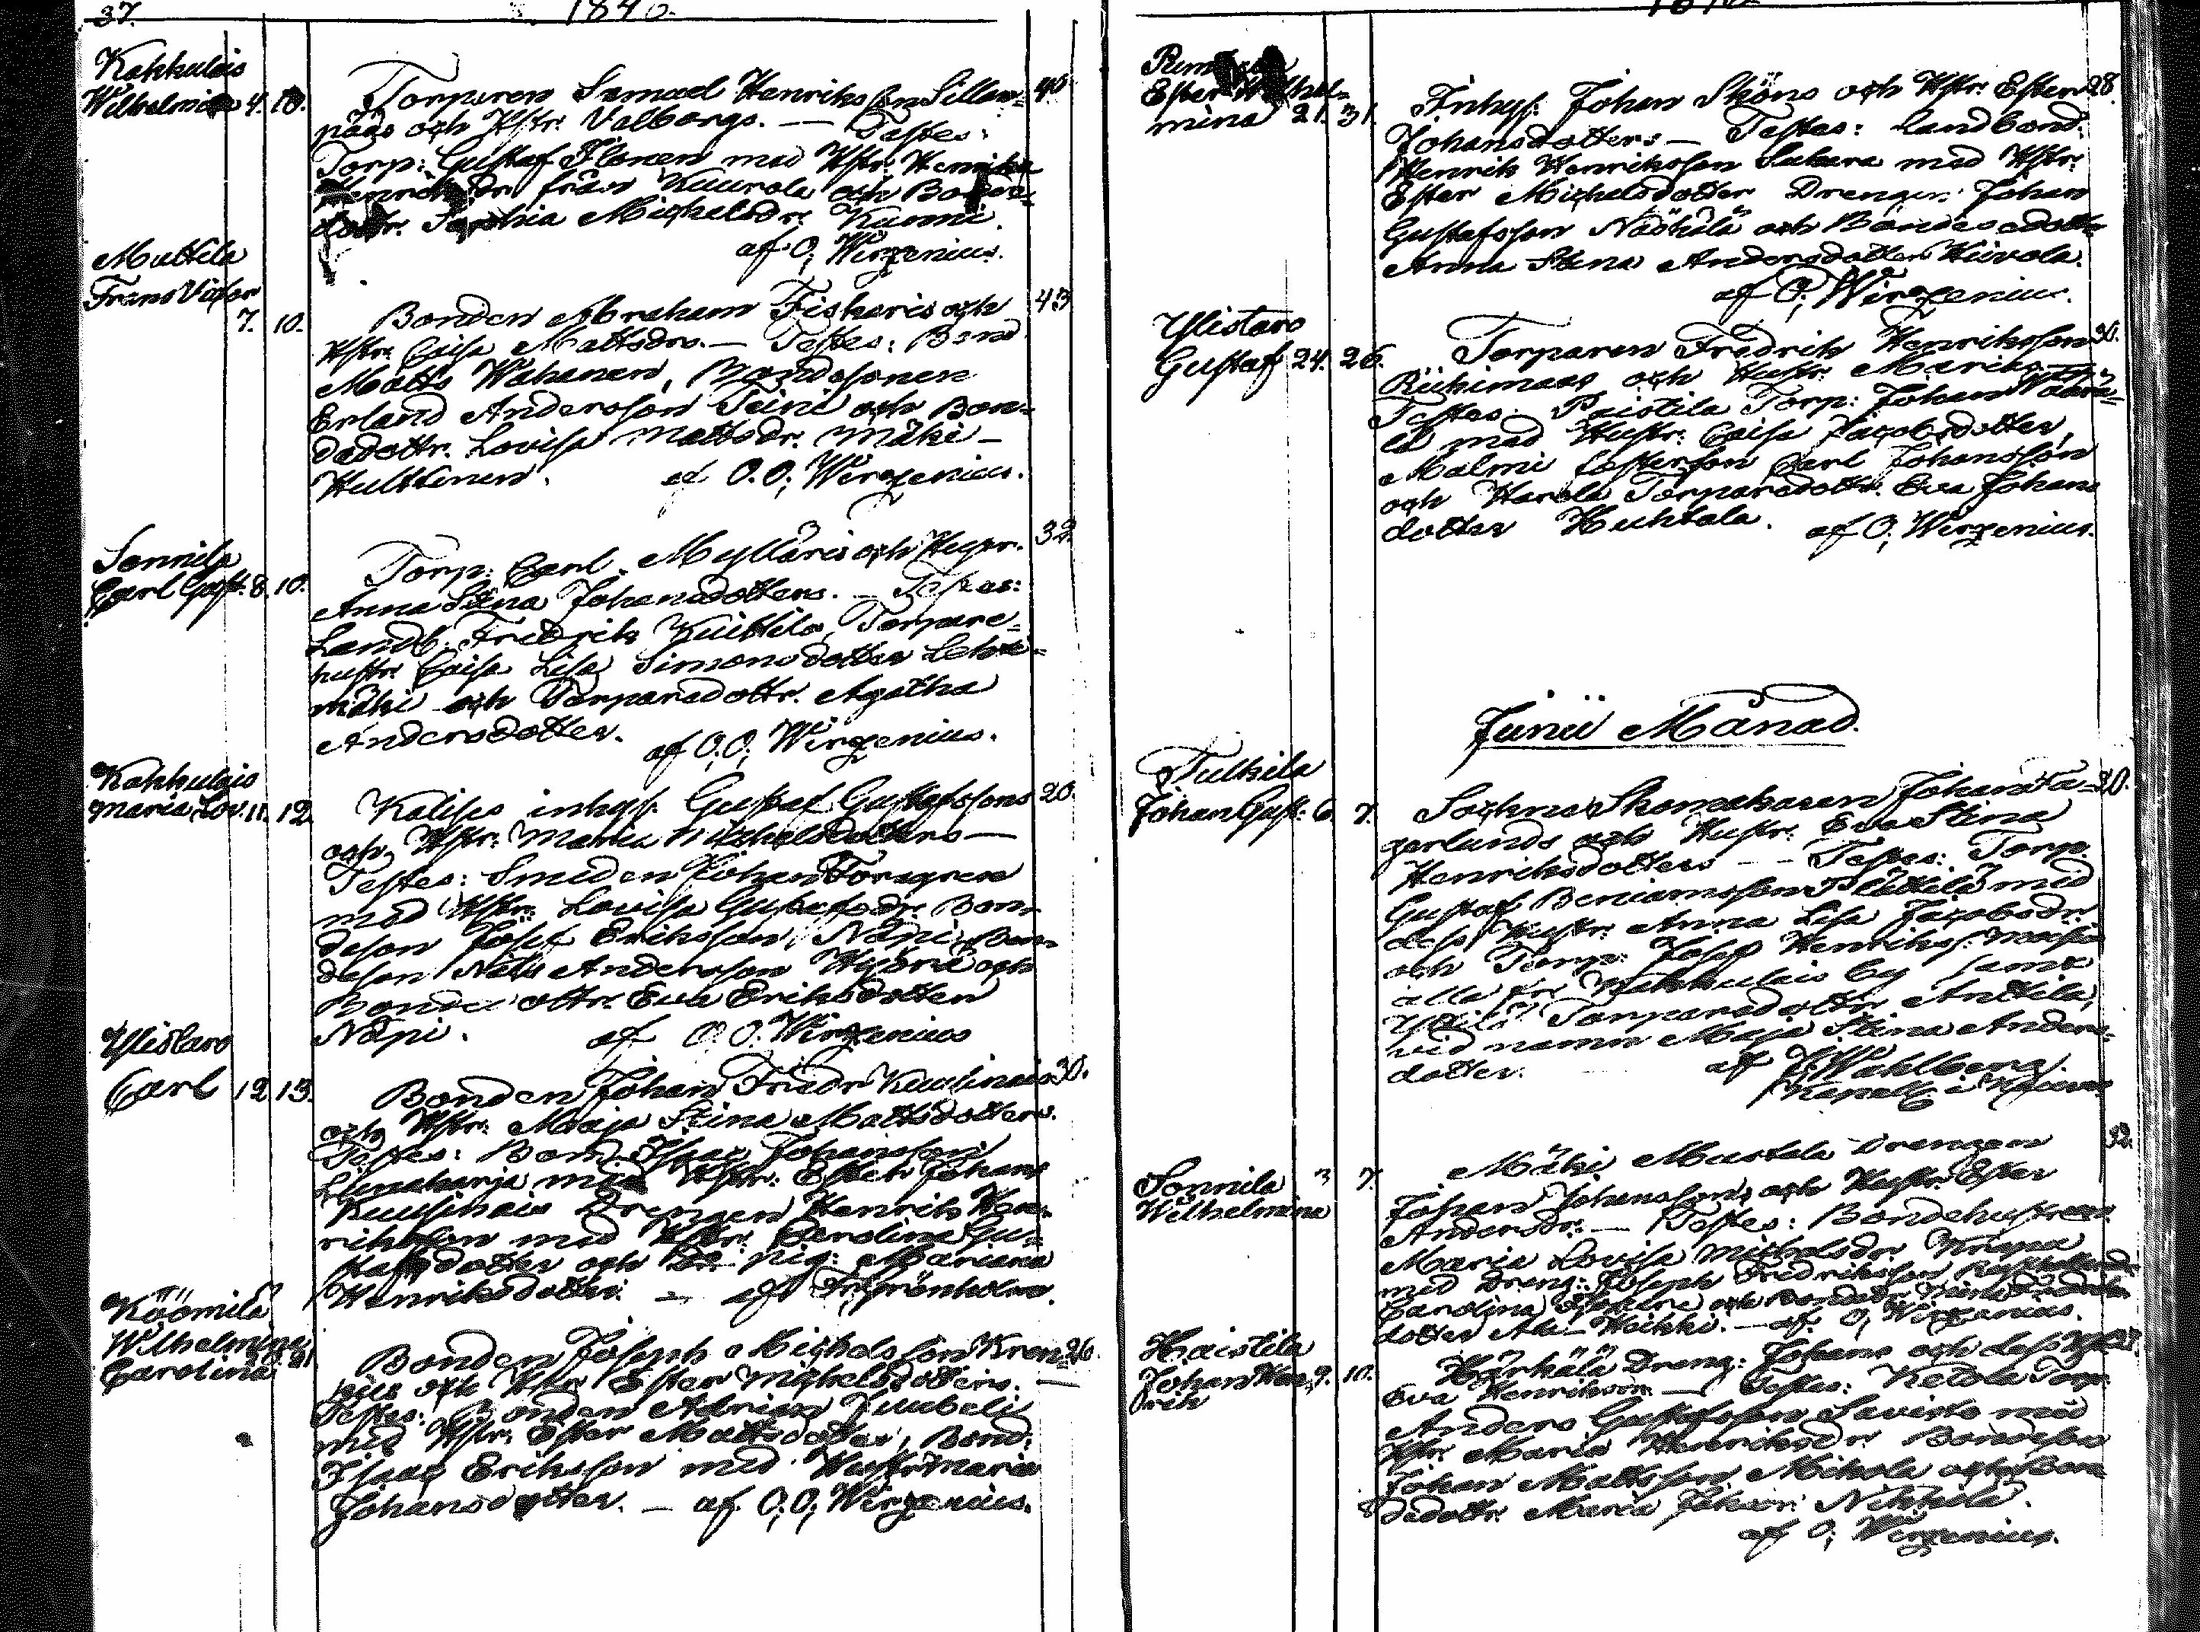 37. 1840.
Kakkulais
Wilhelmina 4. 10. Torparen Samuel Henriksson Sillan- 40
pääs och Hstr. Valborgs. — Testes:
Torp: Gustaf Floren med Hstr. Henrika
Henriksdr. från Kuurola och Bonde-
dottr. Sophia Michelsdr. Kunni.
af O; Wirzenius.
Mattila
Frans Victor
7. 10. Bonden Abraham Fiskaris och 43
Hstr. Caisa Mattsdrs. — Testes: Bond.
Matts Wahanen, Bondesonen
Erland Andersson Teini och Bon-
dedottr. Lovisa Mattsdr. Mäki-
Hulttinen. af O.O; Wirzenius.
Sonnila
Carl Gust. 8. 10. Torp: Carl Myllaris och Hustr. 32
Anna Stina Johansdotters. — Testes:
Landb. Fredrik Kuittila, Torpare-
hustr. Caisa Lisa Simonsdotter Lehti-
mäki och Torparedottr. Agatha
Andersdotter.
af O.O; Wirzenius.
Kakkulais
Maria Lov. 11. 12. Kalises inhys. Gustaf Gustafssons 20.
och Hstr: Maria Michelsdotters —
Testes: Smeden Johan Forsgren
med Hstr: Lovisa Gustafsdr. Bon-
deson Josef Eriksson Näpi, Bon-
deson Nils Andersson Hyörie och
Bondedottr. Eva Eriksdotter
Näpi. af O.O. Wirzenius
Ylistaro
Carl 12 13. Bonden Johan Fredr. Kuusinais 30.
och Hstr: Maja Stina Mattsdotters.
Testes: Bond. Isaac Johansson
Linnaharja med Hstr: Ester Johans
Kuusinais Drengen Henrik Hen-
riksson med Hstr: Carolina Gu-
stafsdotter och Pig: Mariana
Henriksdotter. — af Fr: Grönholm.
Köömilä
Wilhelmina
Carolina 21 Bonden Joseph Michelsson Kren- 26.
och Hstr Ester Michelsdotters. —
Testes: Bonden Adrian Juubeli
med Hstr: Ester Mattsdotter, Bond:
Isaac Eriksson med Hustr Maria
Johansdotter. — af O.O; Wirzenius.
Ester Wilhel-
mina 21. 31. Inhys: Johan Sköns och Hstr: Ester 28.
Johansdotters — Testes: Landbond.
Henrik Henriksson Sukara med Hstr:
Ester Michelsdotter Drengen Johan
Gustafsson Näskälä och Bondesdottr
Anna Stina Andersdotter Hiivola.
af O; Wirzenius.
Ylistaro
Gustaf 24. 26. Torparen Fredrik Henriksson 30.
Riihimaas och Hustr. Marias
Testes: Paistila Torp: Johan
med Hustr: Caisa Jacobsdotter,
Malmi Carl Johansson
och Harola Torparedottr. Eva Johans
dotter Huhtala. af O; Wirzenius.
Junii Månad.
Tulkila
Johan Gust: 6. 7. Sockne Skomakaren Johan Fa- 30.
gerlunds och Hustr: Eva Stina
Henriksdotters — Testes: Torp.
Gustaf Beniamsson Plättilä med
dess Hustr. Anna Lisa Jacobsdr.
och Torp: Josep Henrikss:
alla fr. Kakkulais by samt
Torparedottr. Anttila,
vid namn Maja Stina Anders-
dotter. af Wahlberg.
Sonnila 3 7. Mäki Mustala Drengen 32.
Wilhelmina Johan Johanssons och Hustr: Ester
Andersdr. — Testes: Bondehustrun
Maria Lovisa Michelsdr. Krapu
med Dreng: Joseph Fredriksson
Carolina och
dotter Ala-Heikki. — af O; Wirzenius.
Haistila
Johan Hen-
rik 9. 10. Härkälä Dreng: Johans och dess
Eva Henriksdr. — Testes: Ketola Torp:
Anders Gustafsson Savisto med
Hstr. Maria Henriksdr. Bondeson
Johan Mattsson Mikola och Bon-
dedottr. Maria Johansdr. Nikkila.
af O; Wirzenius.